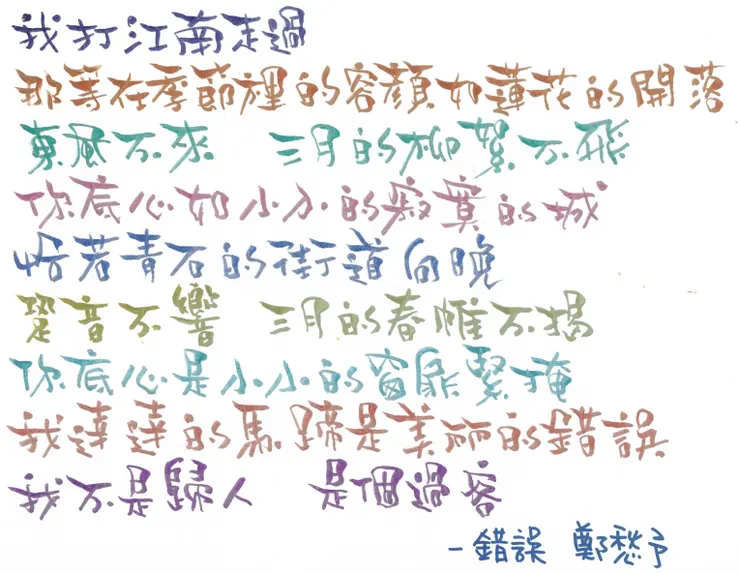 我打江南走過
那等在季節裡的容顏如蓮花的開落
東風不來　三月的柳絮不飛
你底心如小小的寂寞的城
恰若青石的街道向晚
跫音不響　三月的春帷不揭
你底心是小小的窗扉緊掩
我達達的馬蹄是美麗的錯誤
我不是歸人　是個過客
－錯誤　鄭愁予